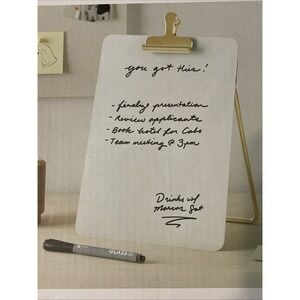 you got this!
- finalize presentation
- Review applicants
- Book hotel for Cabo
- Team meeting @ 3pm
Drinks w/
Marcus Sat
GLASS